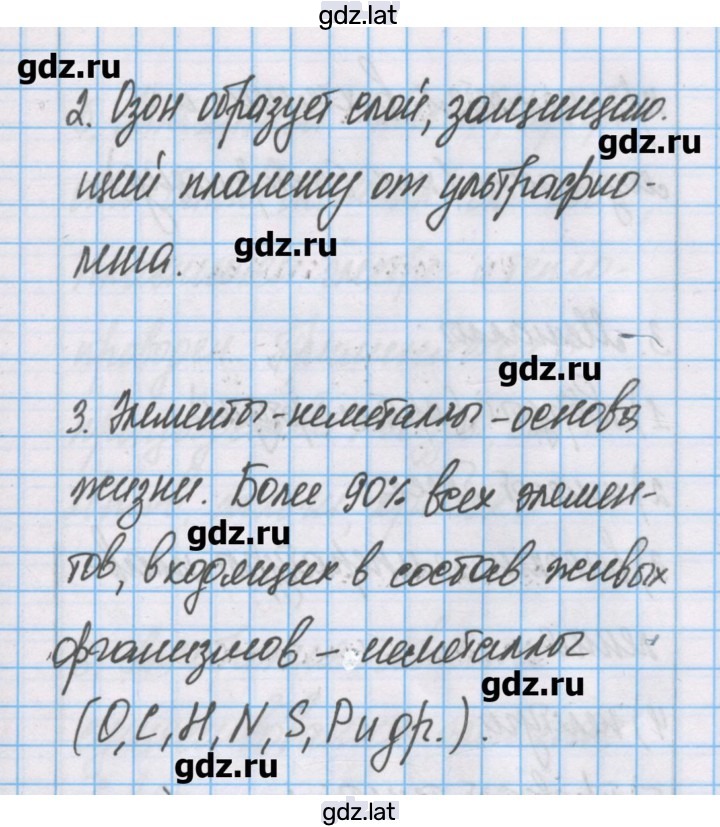 gdz.lat
gdz.ru
2. Озон образует слой, защищаю-
gdz.ru
щий планету от ультрафио-
gdz.ru
лета.
gdz.ru
3. Элементы-неметаллы-основа
жизни. Более 90% всех элемен-
gdz.ru
тов, входящих в состав живых
организмов – неметаллы
gdz.ru
(O, C, H, N, S, P и др.).
gdz.ru
gdz.lat